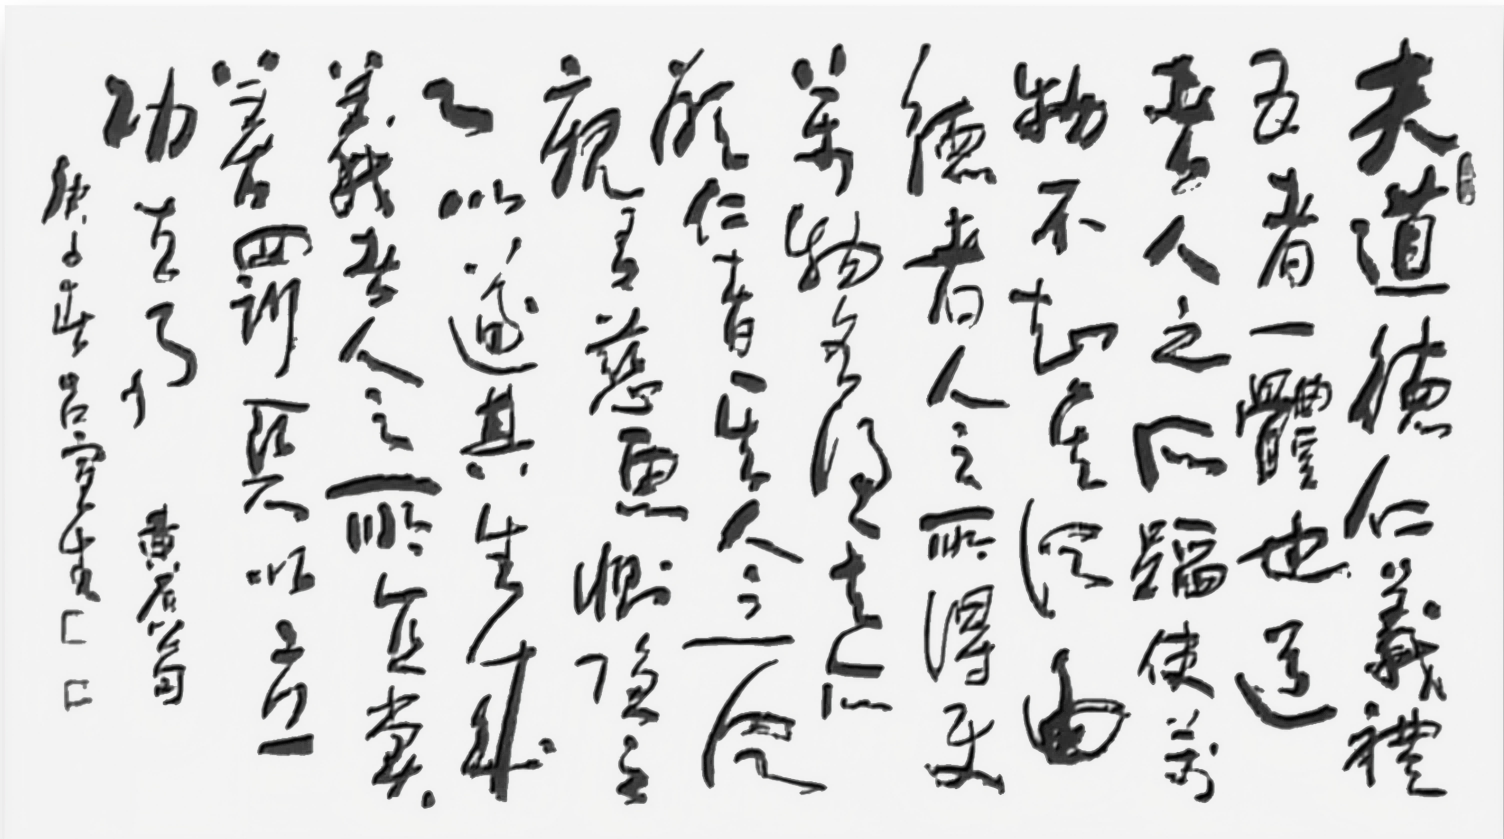 夫道德仁義禮
五者一體也道
者人之所蹈使萬
物不知其所由
德者人之所得使
萬物各得其所
欲仁者人之所
親有慈惠惻隱之
心以遂其生成
義者人之所宜賞
善罰惡以立
功立事 黃石公句
庚子年呂